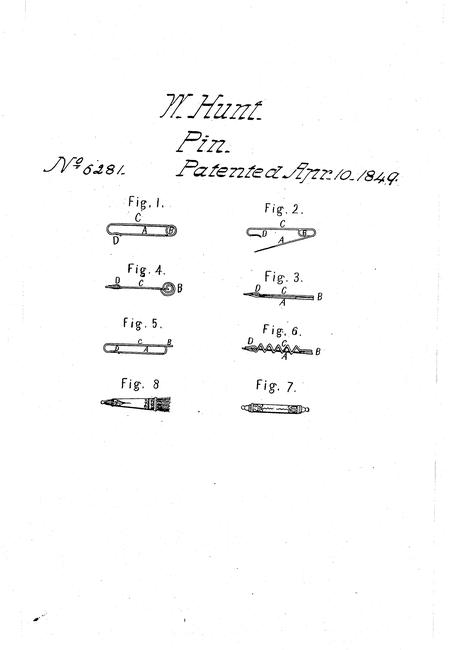 W. Hunt.
Pin.
No 6281. Patented Apr. 10. 1849.
Fig. 1. Fig. 2.
C C
A B D A B
D
Fig. 4. Fig. 3.
D C B D C B
A
Fig. 5. Fig. 6.
C B D C B
D A A
Fig. 8 Fig. 7.